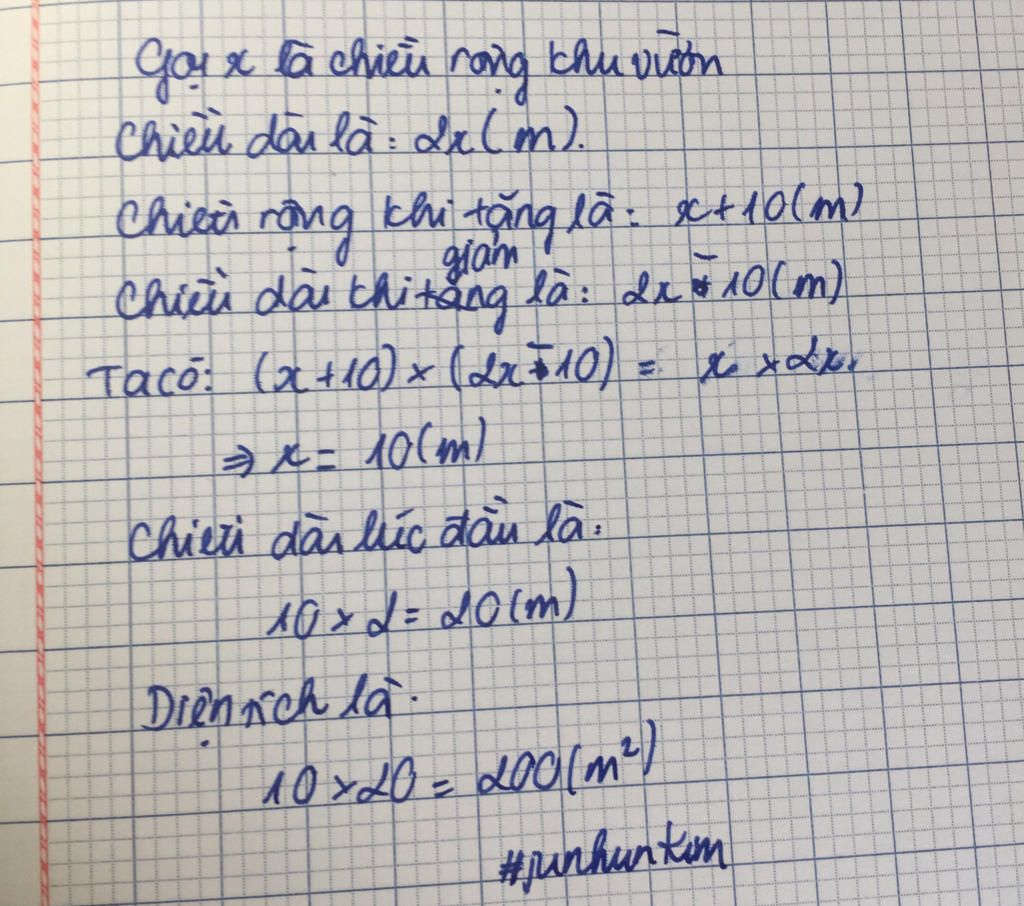 Gọi x là chiều rộng khu vườn
Chiều dài là: 2x (m).
Chiều rộng khi tăng là: x+10 (m)
giảm
Chiều dài khi tăng là: 2x - 10 (m)
Ta có: (x+10) × (2x-10) = x × 2x.
⇒ x = 10 (m)
Chiều dài lúc đầu là:
10 × 2 = 20 (m)
Diện tích là.
10 × 20 = 200 (m²)
#junhunkim